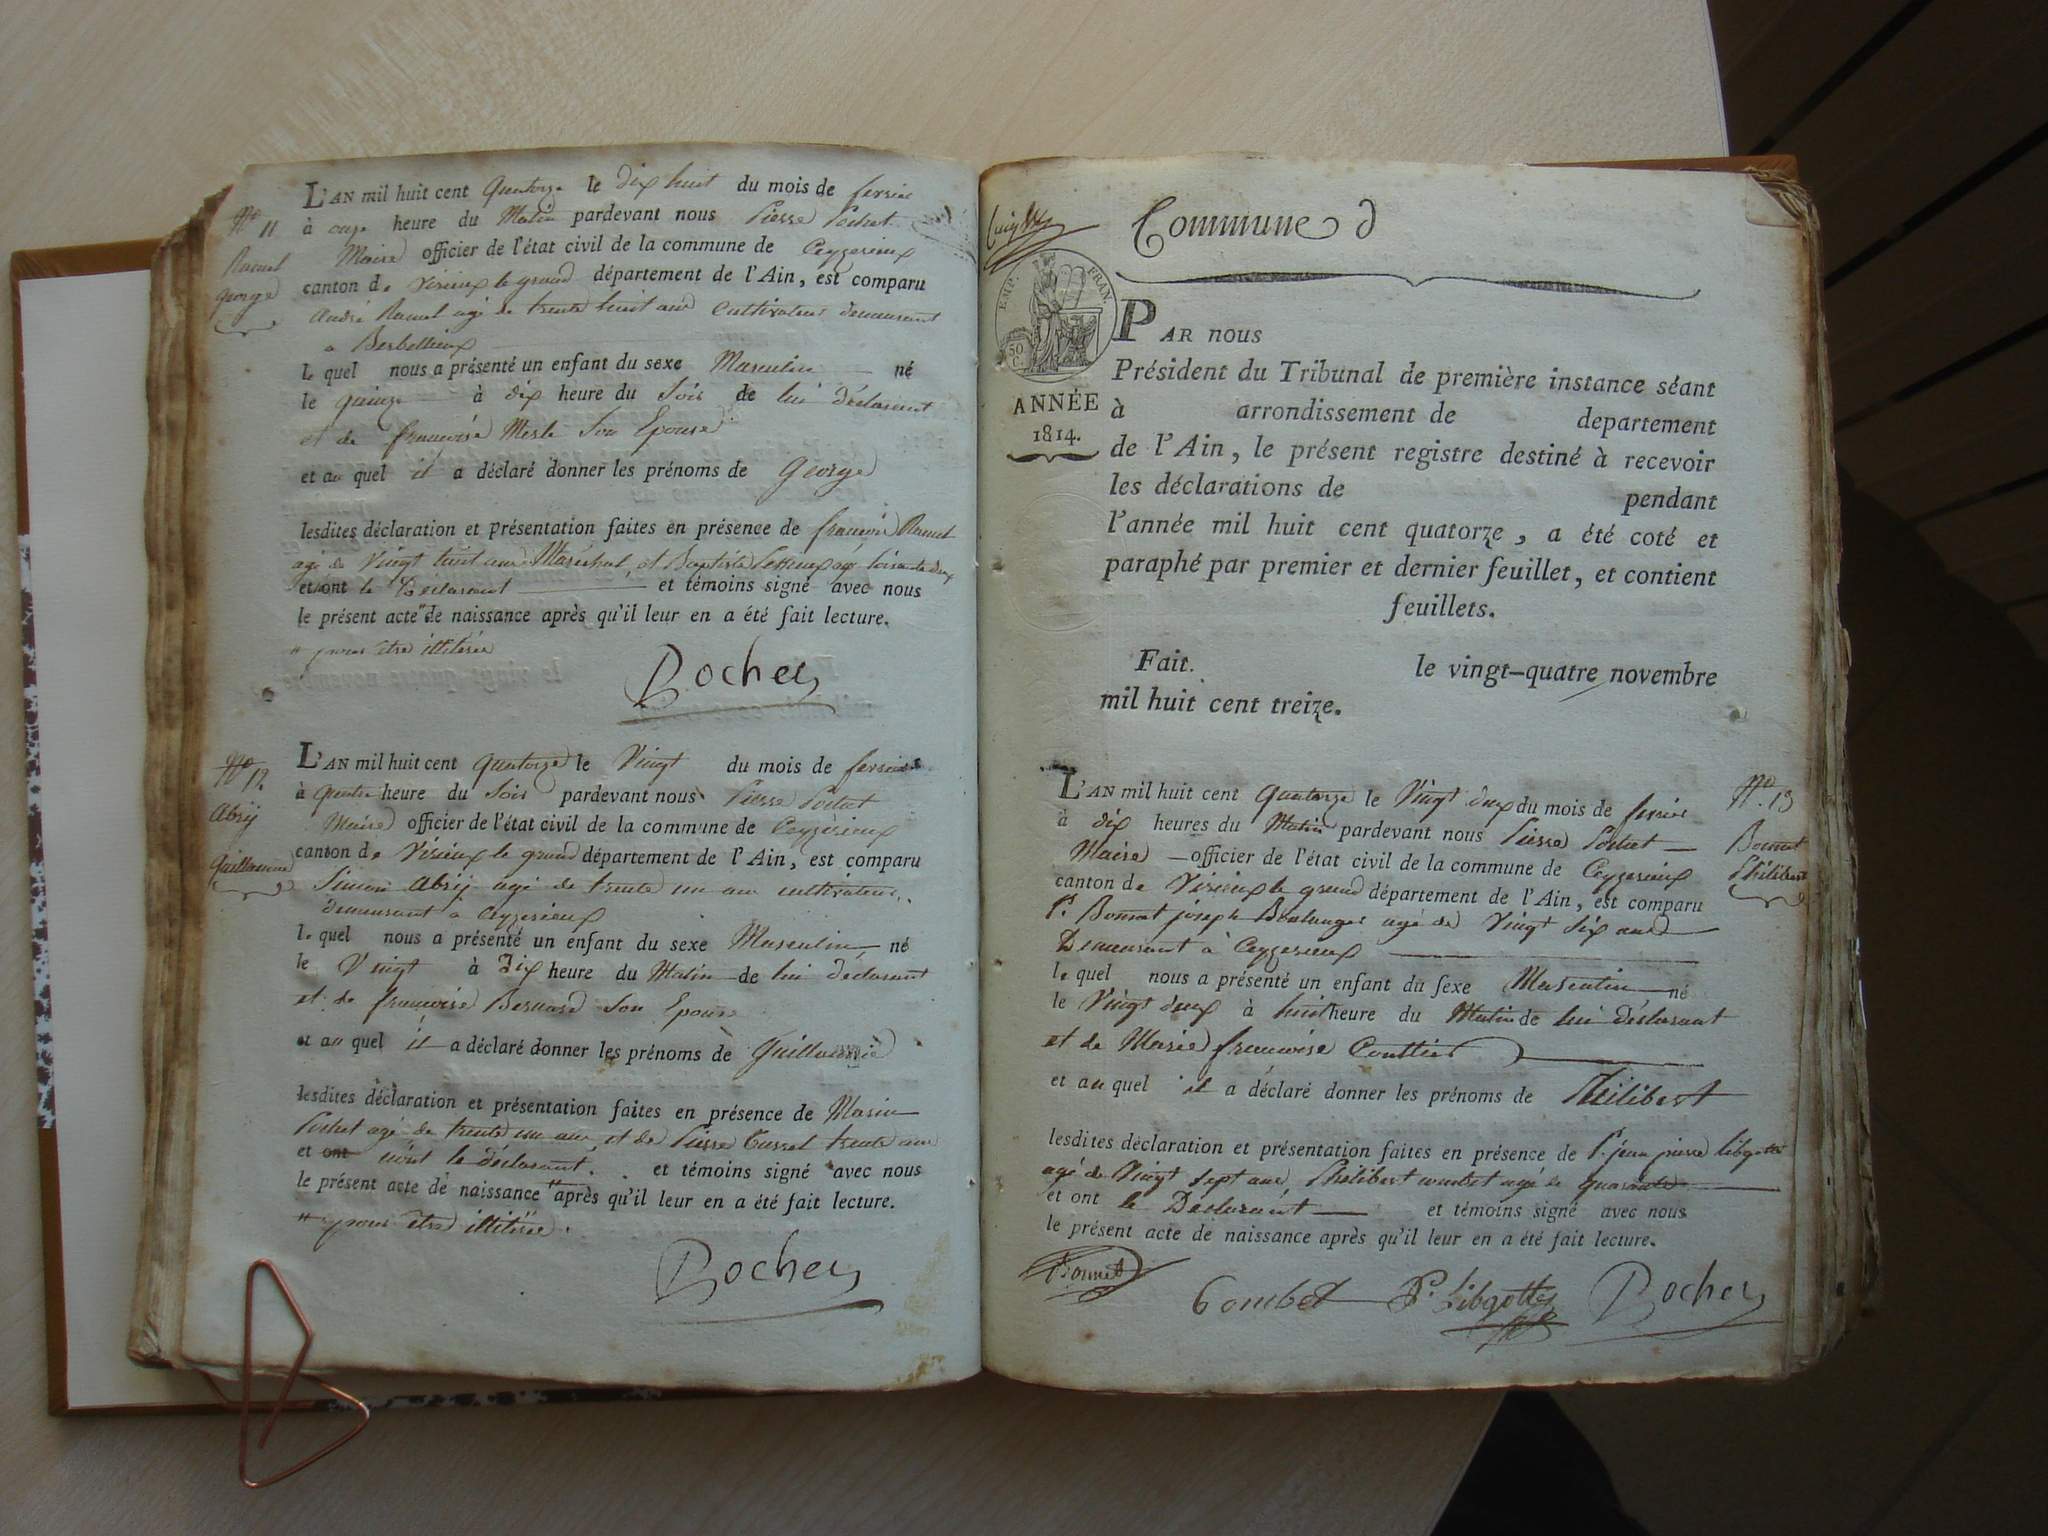 L'AN mil huit cent quatorze le dix huit du mois de fevrier
N° 11 à onze heure du Matin pardevant nous Pierre Pochet
Ramel Maire officier de l'état civil de la commune de Ceyzerieux
George canton de Virieux le grand département de l'Ain, est comparu
André Ramel agé de trente huit ans Cultivateur demeurant
a
Le quel nous a présenté un enfant du sexe Masculin né
le quinze à dix heure du Soir de lui déclarant
et de françoise Merle Son Epouse
et au quel il a déclaré donner les prénoms de George
lesdites déclaration et présentation faites en présence de françois Ramel
agé de Vingt huit ans Maréchal, et Baptiste agé soixante deux
et ont le Déclarant et témoins signé avec nous
le présent acte " de naissance après qu'il leur en a été fait lecture.
" pour être illitérée
Pochet
L'AN mil huit cent quatorze le Vingt du mois de fevrier
N° 12. à quatre heure du Soir pardevant nous Pierre Pochet
Abry Maire officier de l'état civil de la commune de Ceyzèrieux
Guillaume canton de Virieux le grand département de l'Ain, est comparu
Simon Abry agé de trente un ans cultivateur,
demeurant à Ceyzerieux
le quel nous a présenté un enfant du sexe Masculin né
le Vingt à Dix heure du Matin de lui déclarant
et de françoise Bernard Son Epouse
et au quel il a déclaré donner les prénoms de Guillaume
lesdites déclaration et présentation faites en présence de Marin
Pochet agé de trente un ans, et de Pierre trente ans
et ont n'ont le déclarant. et témoins signé avec nous
le présent acte de naissance " après qu'il leur en a été fait lecture.
" pour être illitérée.
Pochet
Commune d
EMP. FRAN.
50 C.
ANNÉE
1814.
PAR nous
Président du Tribunal de première instance séant
à arrondissement de departement
de l'Ain, le présent registre destiné à recevoir
les déclarations de pendant
l'année mil huit cent quatorze, a été coté et
paraphé par premier et dernier feuillet, et contient
feuillets.
Fait. le vingt-quatre novembre
mil huit cent treize.
L'AN mil huit cent quatorze le Vingt deux du mois de fevrier N°. 13
à dix heures du Matin pardevant nous Pierre Pochet Bonnet
Maire officier de l'état civil de la commune de Ceyzerieux Philibert
canton de Virieux le grand département de l'Ain, est comparu
Sr. Bonnet joseph Boulanger agé de Vingt Six ans
Demeurant à Ceyzerieux
le quel nous a présenté un enfant du sexe Masculin né
le Vingt deux à huit heure du Matin de lui déclarant
et de Marie françoise
et au quel il a déclaré donner les prénoms de Philibert
lesdites déclaration et présentation faites en présence de Sr. jean pierre
agé de Vingt sept ans, Philibert combet agé de quarante
et ont le Déclarant et témoins signé avec nous
le présent acte de naissance après qu'il leur en a été fait lecture.
Bonnet Combet Pochet